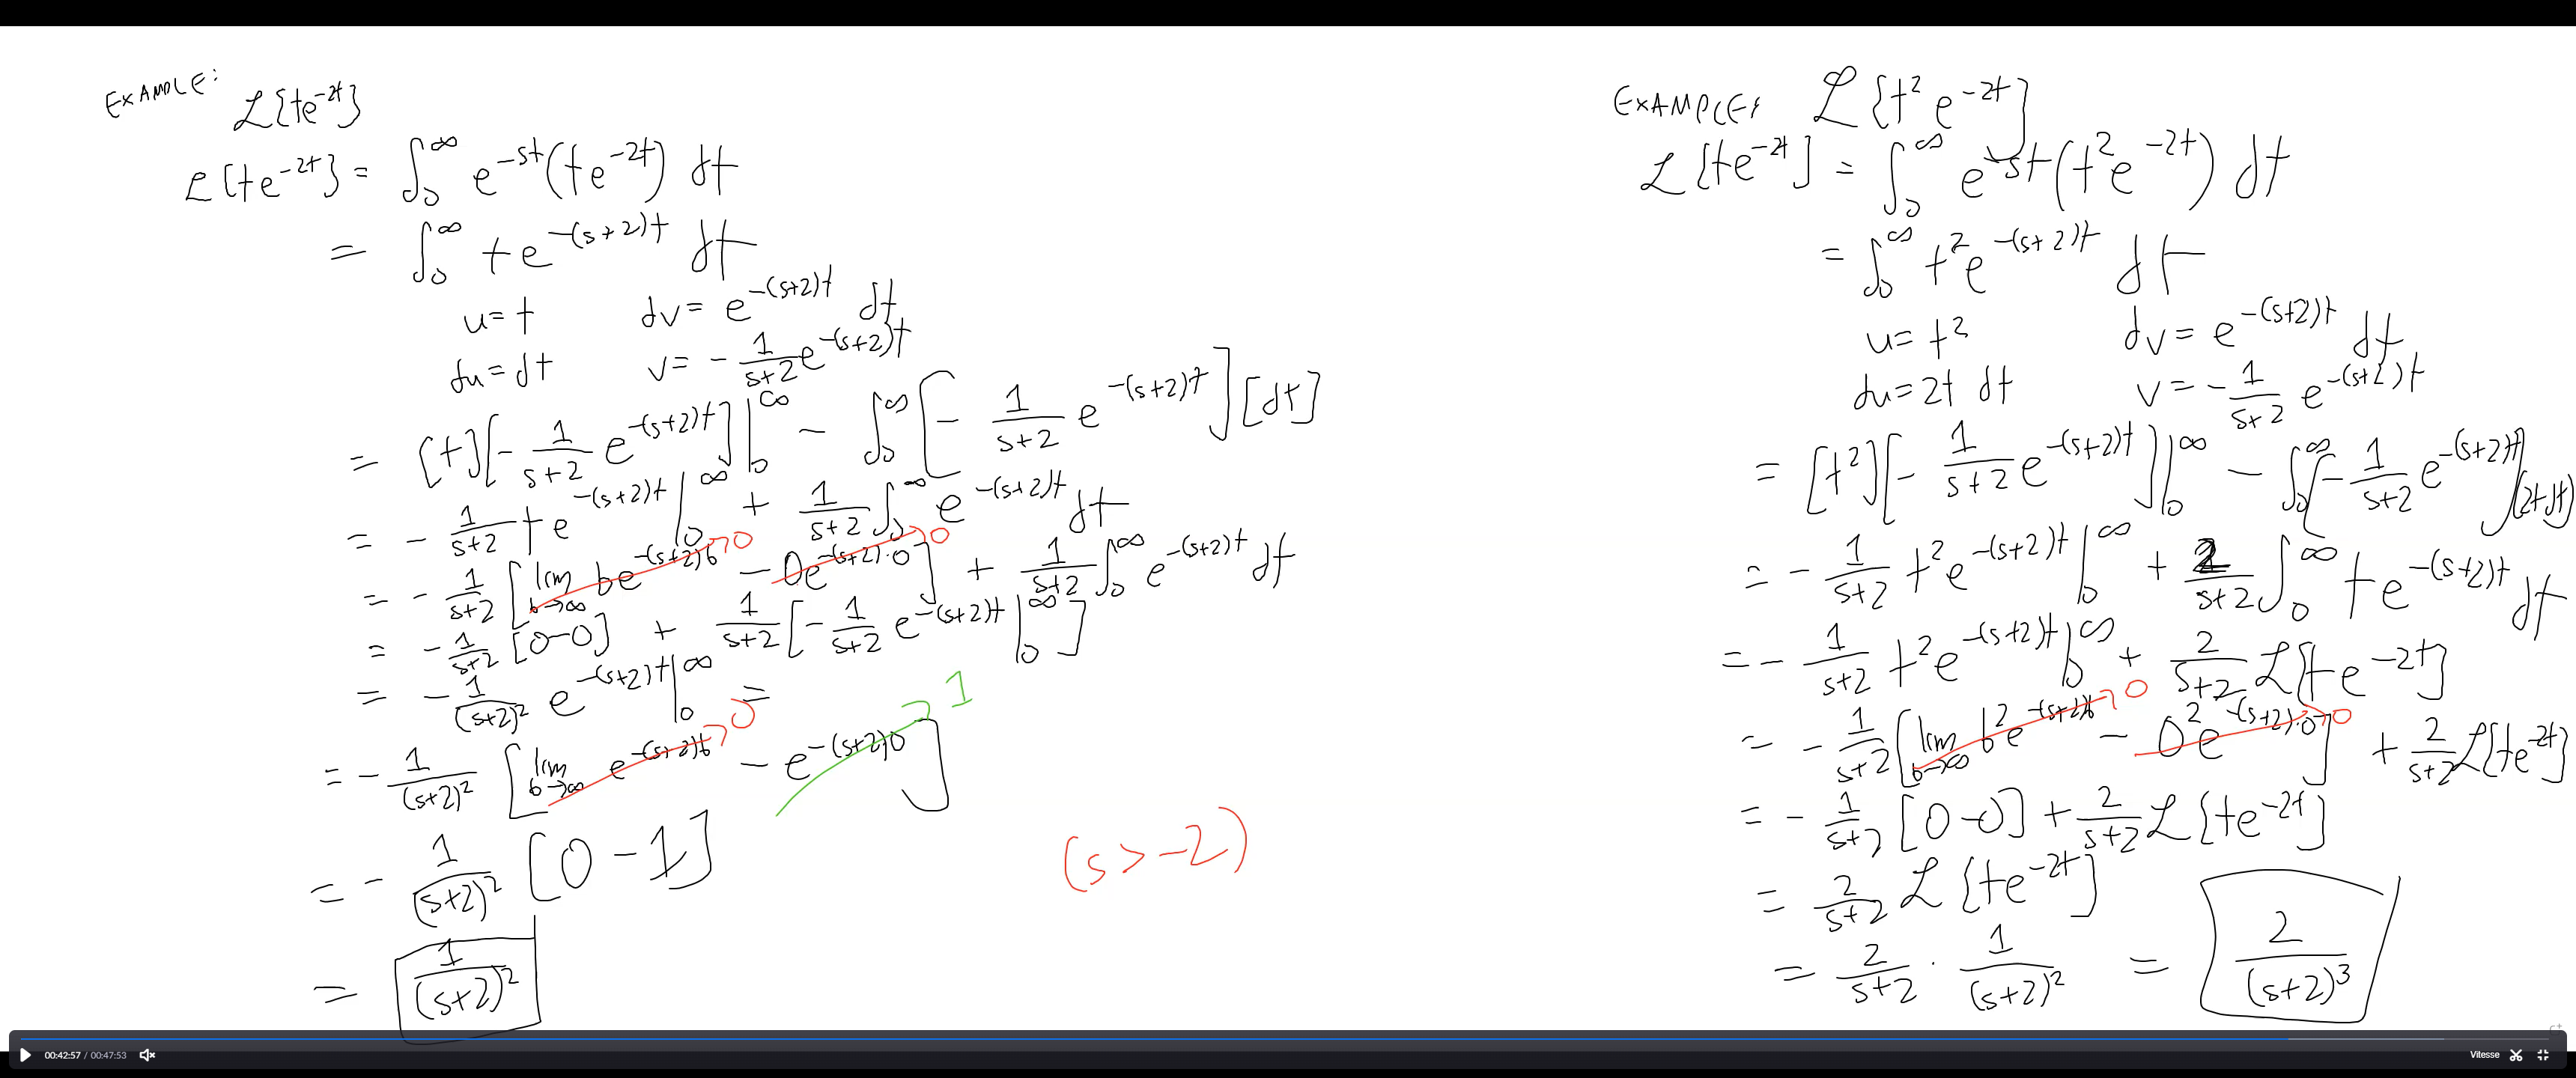 EXAMPLE: ℒ{te^{-2t}}
ℒ{te^{-2t}} = ∫_0^∞ e^{-st}(te^{-2t}) dt
= ∫_0^∞ te^{-(s+2)t} dt
u = t dv = e^{-(s+2)t} dt
du = dt v = -\frac{1}{s+2}e^{-(s+2)t}
= [t][-\frac{1}{s+2} e^{-(s+2)t}]|_0^∞ - ∫_0^∞ [-\frac{1}{s+2} e^{-(s+2)t}][dt]
= -\frac{1}{s+2} te^{-(s+2)t}|_0^∞ + \frac{1}{s+2}∫_0^∞ e^{-(s+2)t} dt
= -\frac{1}{s+2} [lim_{b→∞} be^{-(s+2)b} →0 - 0e^{-(s+2)·0} →0] + \frac{1}{s+2}∫_0^∞ e^{-(s+2)t} dt
= -\frac{1}{s+2} [0-0] + \frac{1}{s+2}[-\frac{1}{s+2} e^{-(s+2)t}|_0^∞]
= -\frac{1}{(s+2)^2} e^{-(s+2)t}|_0^∞ =
= -\frac{1}{(s+2)^2} [lim_{b→∞} e^{-(s+2)b} →0 - e^{-(s+2)0} →1]
= -\frac{1}{(s+2)^2} [0-1]
(s > -2)
= \frac{1}{(s+2)^2}
EXAMPLE: ℒ{t^2 e^{-2t}}
ℒ{te^{-2t}} = ∫_0^∞ e^{-st}(t^2e^{-2t}) dt
= ∫_0^∞ t^2e^{-(s+2)t} dt
u = t^2 dv = e^{-(s+2)t} dt
du = 2t dt v = -\frac{1}{s+2} e^{-(s+2)t}
= [t^2][-\frac{1}{s+2}e^{-(s+2)t}]|_0^∞ - ∫_0^∞ [-\frac{1}{s+2}e^{-(s+2)t}](2t dt)
= -\frac{1}{s+2} t^2e^{-(s+2)t}|_0^∞ + \frac{2}{s+2}∫_0^∞ te^{-(s+2)t} dt
= -\frac{1}{s+2} t^2e^{-(s+2)t}|_0^∞ + \frac{2}{s+2} ℒ{te^{-2t}}
= -\frac{1}{s+2}[lim_{b→∞} b^2e^{-(s+2)b} →0 - 0^2e^{-(s+2)·0} →0] + \frac{2}{s+2}ℒ{te^{-2t}}
= -\frac{1}{s+2} [0-0] + \frac{2}{s+2} ℒ{te^{-2t}}
= \frac{2}{s+2} ℒ{te^{-2t}}
= \frac{2}{s+2} · \frac{1}{(s+2)^2} = \frac{2}{(s+2)^3}
00:42:57 / 00:47:53
Vitesse